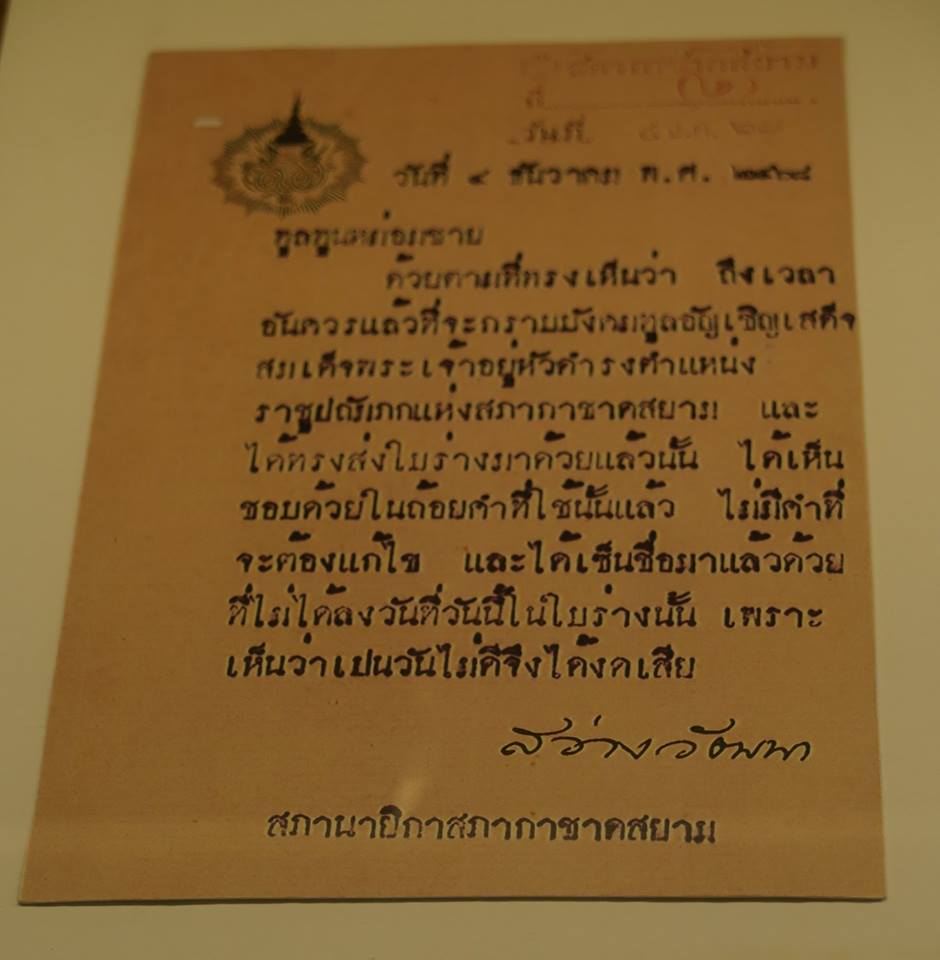 ที่
วันที่ ๕ ธ.ค. ๒๔๖๘
วันที่ ๔ ธันวาคม พ.ศ. ๒๔๖๘
ทูลทูนหม่อมชาย
ด้วยตามที่ทรงเห็นว่า ถึงเวลา
อันควรแล้วที่จะกราบบังคมทูลอัญเชิญเสด็จ
สมเด็จพระเจ้าอยู่หัวดำรงตำแหน่ง
ราชูปถัมภกแห่งสภากาชาดสยาม และ
ได้ทรงส่งใบร่างมาด้วยแล้วนั้น ได้เห็น
ชอบด้วยในถ้อยคำที่ใช้นั้นแล้ว ไม่มีคำที่
จะต้องแก้ไข และได้เซ็นชื่อมาแล้วด้วย
ที่ไม่ได้ลงวันที่วันนี้ในใบร่างนั้น เพราะ
เห็นว่าเปนวันไม่ดีจึงได้งดเสีย
สว่างวัฒนา
สภานายิกาสภากาชาดสยาม